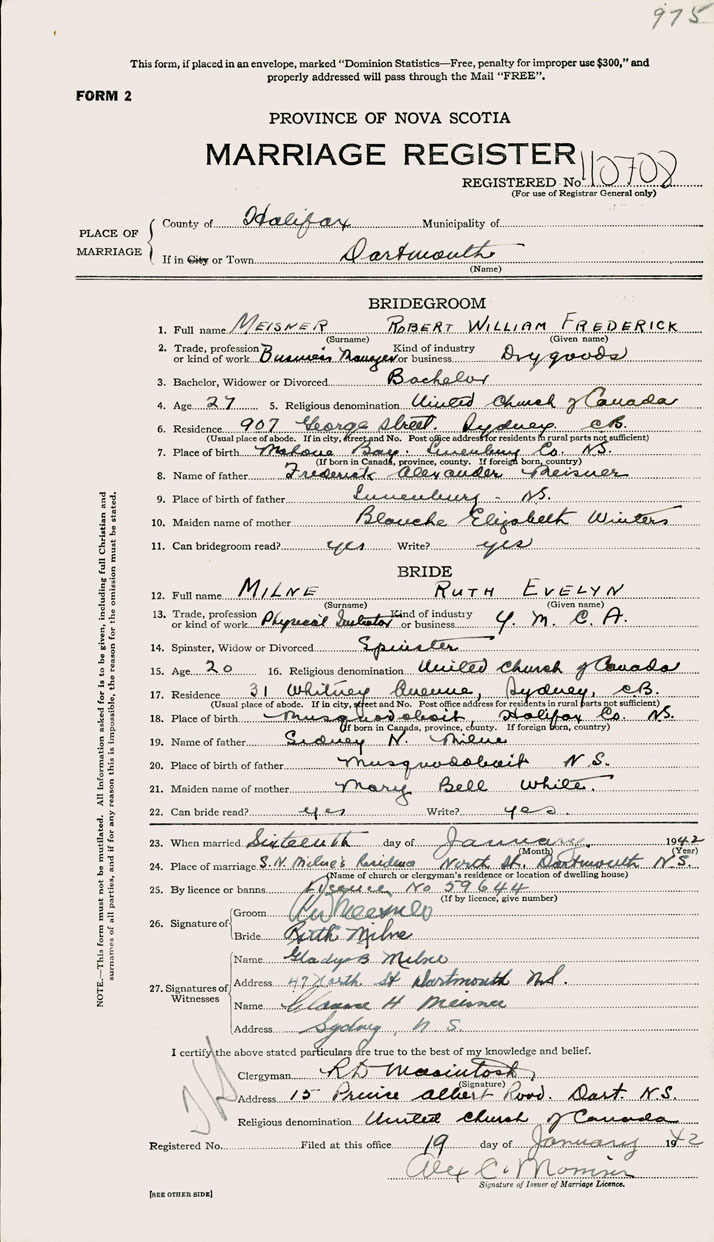 975
This form, if placed in an envelope, marked "Dominion Statistics—Free, penalty for improper use $300," and
properly addressed will pass through the Mail "FREE".
FORM 2
PROVINCE OF NOVA SCOTIA
MARRIAGE REGISTER
REGISTERED No. 110708
(For use of Registrar General only)
PLACE OF MARRIAGE
County of Halifax Municipality of
If in City or Town Dartmouth
(Name)
BRIDEGROOM
1. Full name MEISNER ROBERT WILLIAM FREDERICK
(Surname) (Given name)
2. Trade, profession or kind of work Business Manager Kind of industry or business Dry goods
3. Bachelor, Widower or Divorced Bachelor
4. Age 27 5. Religious denomination United Church of Canada
6. Residence 907 George Street. Sydney. CB.
(Usual place of abode. If in city, street and No. Post office address for residents in rural parts not sufficient)
7. Place of birth Mahone Bay. Lunenburg Co. NS.
(If born in Canada, province, county. If foreign born, country)
8. Name of father Frederick Alexander Meisner
9. Place of birth of father Lunenburg - NS.
10. Maiden name of mother Blanche Elizabeth Winters
11. Can bridegroom read? yes Write? yes
BRIDE
12. Full name MILNE RUTH EVELYN
(Surname) (Given name)
13. Trade, profession or kind of work Physical Instructor Kind of industry or business Y. M. C. A.
14. Spinster, Widow or Divorced Spinster
15. Age 20 16. Religious denomination United Church of Canada
17. Residence 31 Whitney Avenue, Sydney, CB.
(Usual place of abode. If in city, street and No. Post office address for residents in rural parts not sufficient)
18. Place of birth Musquodoboit, Halifax Co. NS.
(If born in Canada, province, county. If foreign born, country)
19. Name of father Sidney N. Milne
20. Place of birth of father Musquodoboit N.S.
21. Maiden name of mother Mary Bell White.
22. Can bride read? yes Write? yes.
23. When married Sixteenth day of January. 1942
(Month) (Year)
24. Place of marriage S.N. Milne's Residence North St. Dartmouth N.S.
(Name of church or clergyman's residence or location of dwelling house)
25. By licence or banns Licence No 59644
(If by licence, give number)
26. Signature of
Groom
Bride Ruth Milne
27. Signatures of Witnesses
Name Gladys B Milne
Address 47 North St Dartmouth N.S.
Name H Meisner
Address Sydney, N.S.
I certify the above stated particulars are true to the best of my knowledge and belief.
Clergyman R D Macintosh
(Signature)
Address 15 Prince Albert Road. Dart. N.S.
Religious denomination United Church of Canada
Registered No. Filed at this office 19 day of January 1942
Alex C.
Signature of Issuer of Marriage Licence.
[SEE OTHER SIDE]
NOTE.—This form must not be mutilated. All information asked for is to be given, including full Christian and
surnames of all parties, and if for any reason this is impossible, the reason for the omission must be stated.